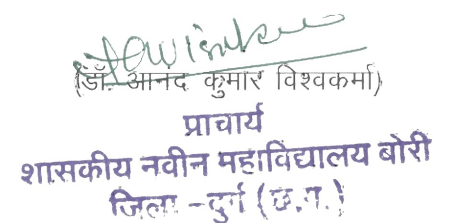 (डॉ. आनंद कुमार विश्वकर्मा)
प्राचार्य
शासकीय नवीन महाविद्यालय बोरी
जिला - दुर्ग (छ.ग.)